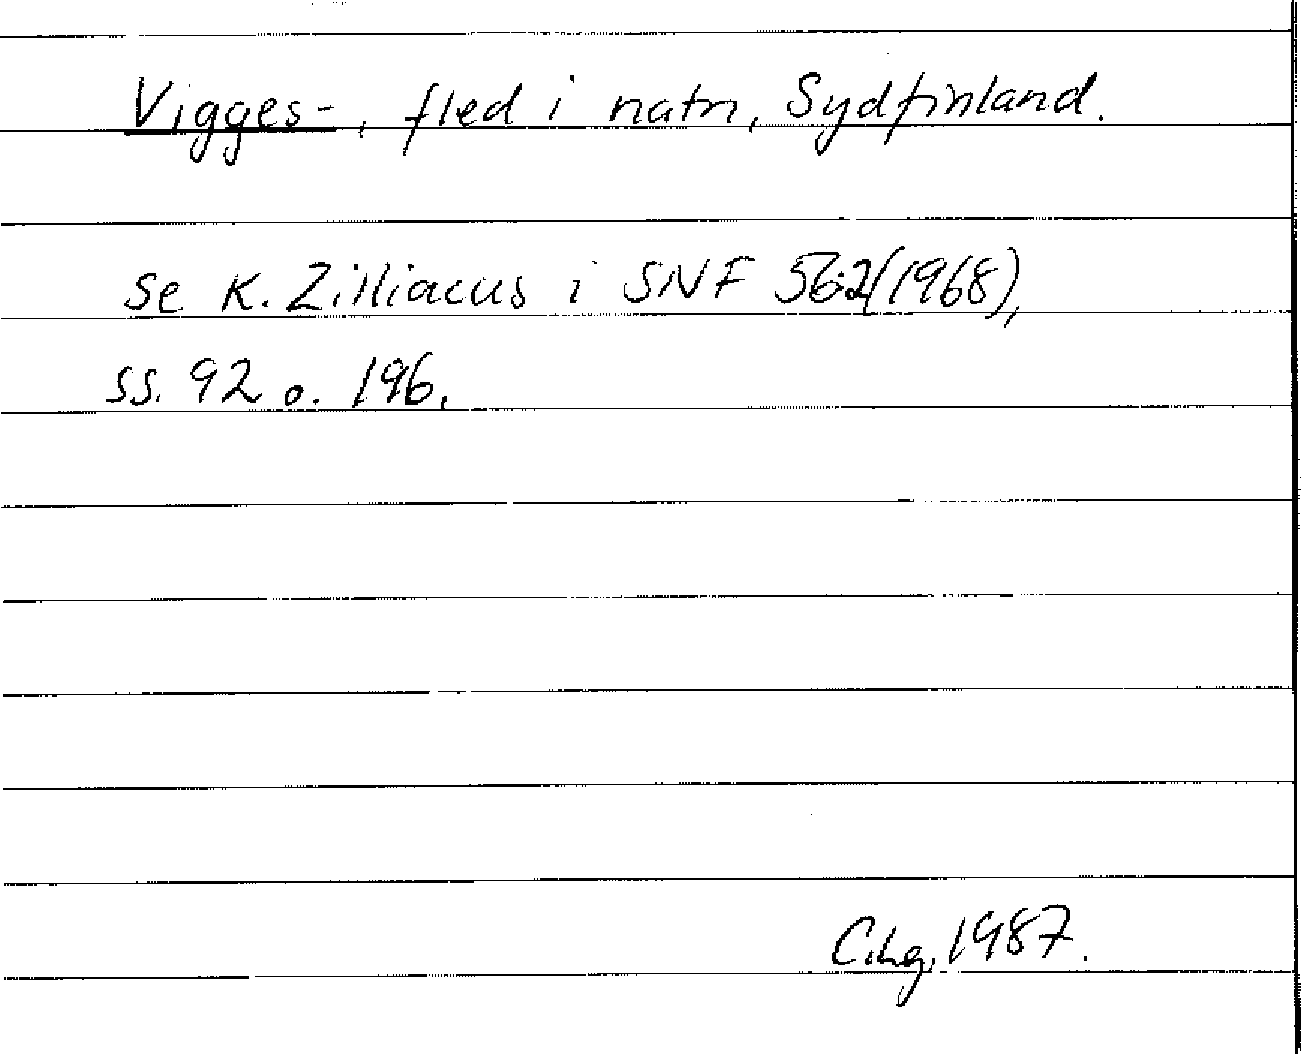 Vigges-, fled i natn, Sydfinland.
se K. Zilliacus i SNF 56:2(1968),
ss. 92 o. 196.
C.Hg. 1987.